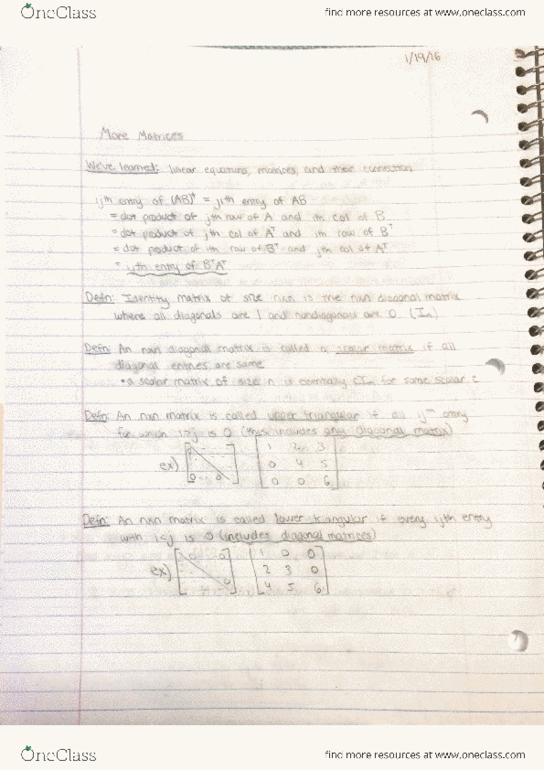 OneClass
find more resources at www.oneclass.com
1/19/16
More Matrices
We've learned: linear equations, matrices, and their connection
ijth entry of (AB)ᵀ = jith entry of AB
= dot product of jth row of A and ith col of B
= dot product of jth col of Aᵀ and ith row of Bᵀ
= dot product of ith row of Bᵀ and jth col of Aᵀ
= ijth entry of BᵀAᵀ
Defn: Identity matrix of size nxn is the nxn diagonal matrix
where all diagonals are 1 and nondiagonals are 0 (In)
Defn: An nxn diagonal matrix is called a scalar matrix if all
diagonal entries are same
• a scalar matrix of size n is essentially cIn for some scalar c
Defn: An nxn matrix is called upper triangular if all ijth entry
for which i>j is 0 (this includes any diagonal matrix)
ex) 0 0 1 2 3
0 4 5
0 0 6
Defn: An nxn matrix is called lower triangular if every ijth entry
with i<j is 0 (includes diagonal matrices)
ex) 0 0 0 1 0 0
2 3 0
4 5 6
OneClass
find more resources at www.oneclass.com